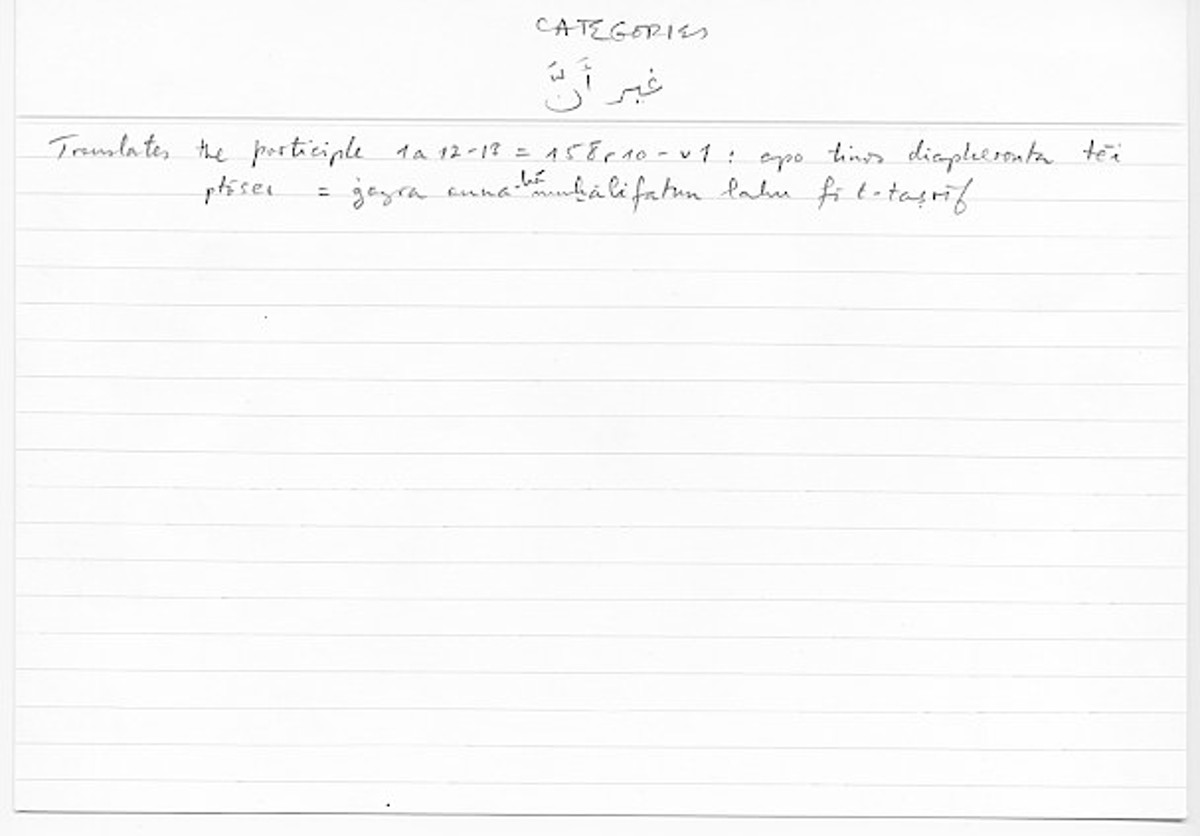 CATEGORIES
غير أَنَّ
Translates the participle 1a 12-13 = 158r10-v1 : apo tinos diapheronta tēi
ptōsei = ġayra anna-hā muḫālifatun lahu fī t-taṣrīf